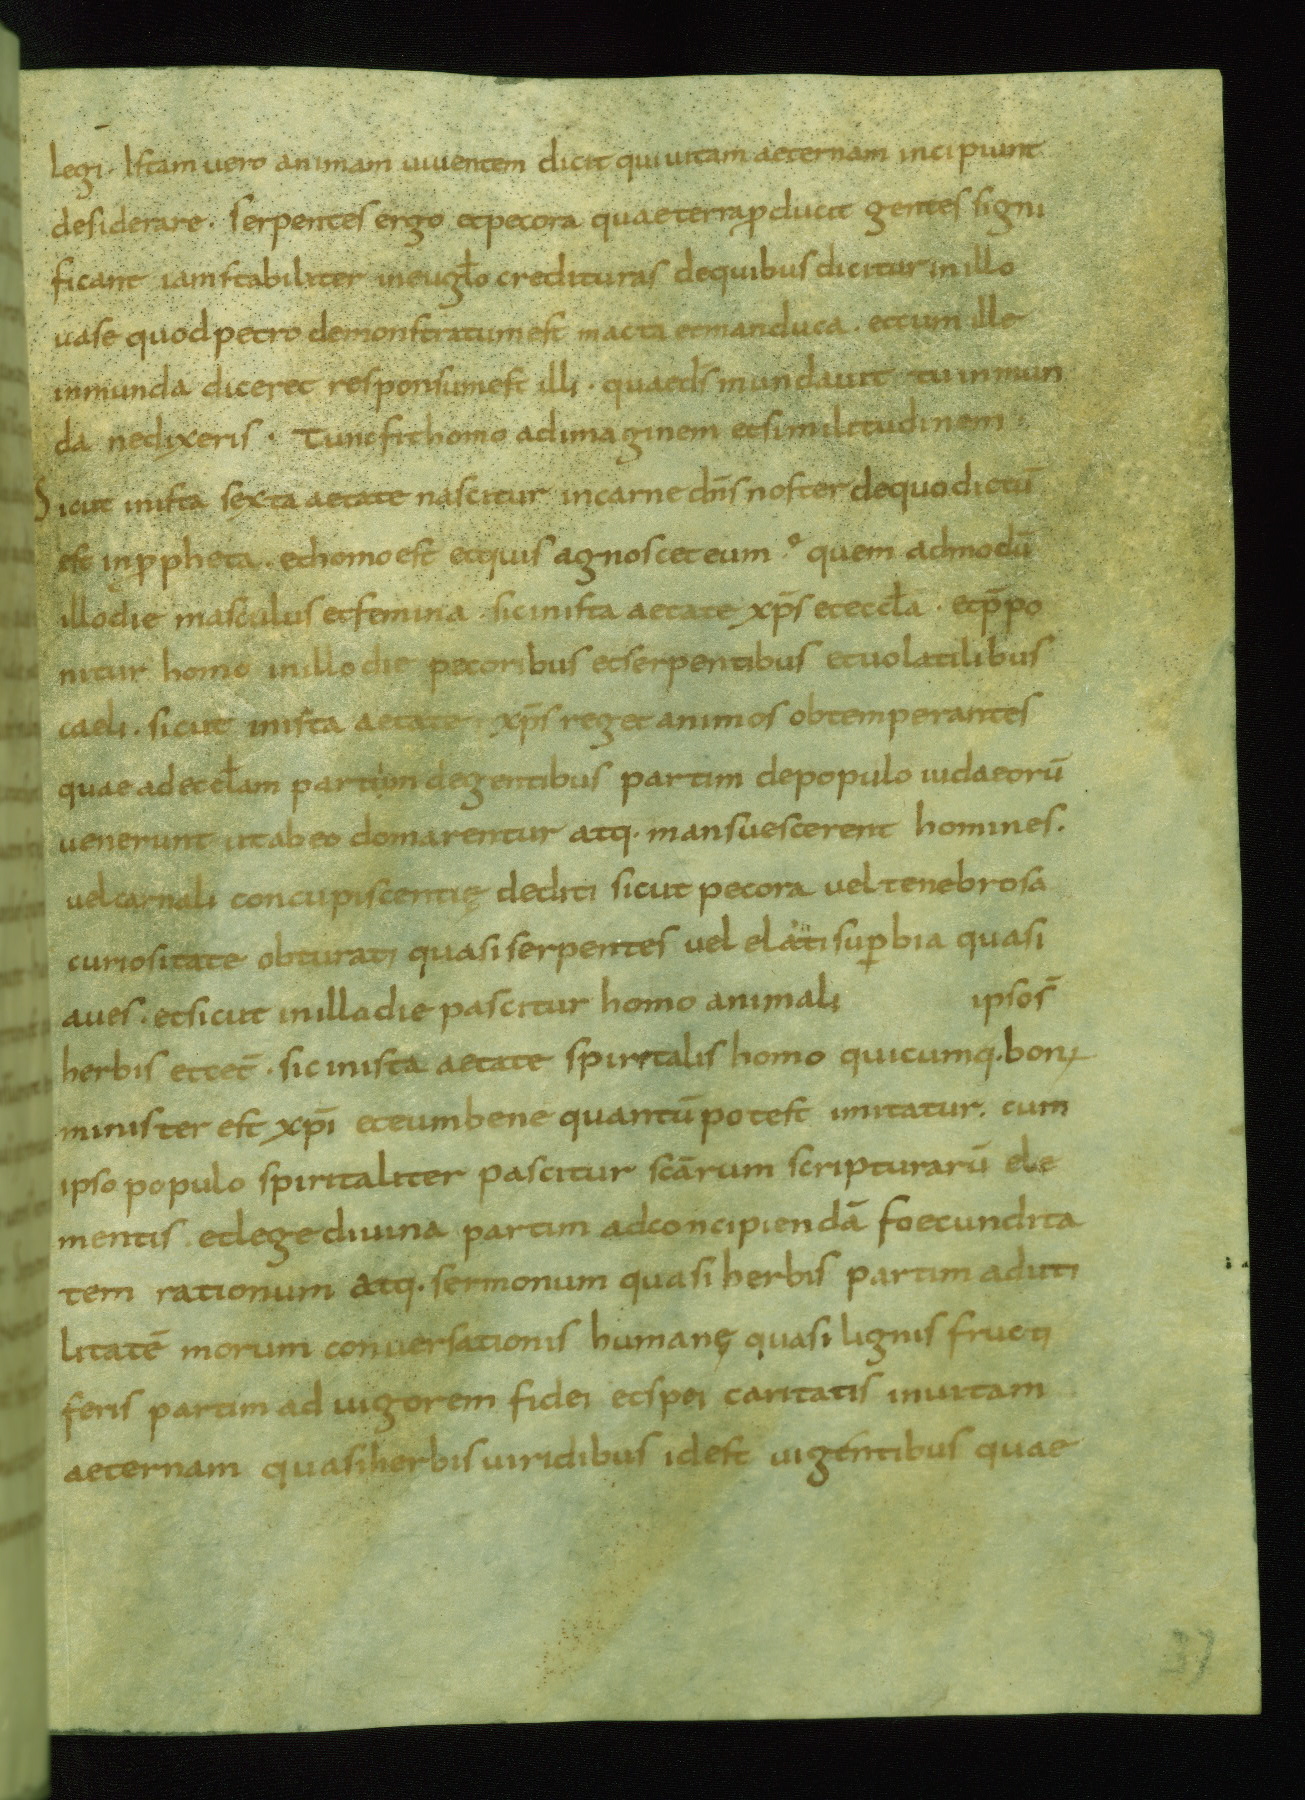 legi. Istam vero animam viventem dicit qui vitam aeternam incipiunt
desiderare. serpentes ergo et pecora quae terra ꝓducit gentes signi
ficant iam stabiliter in eugło credituras de quibus dicitur in illo
uase quod petro demonstratum est macta et manduca. et cum ille
inmunda diceret responsum est illi. quae ds̄ mundavit tu inmun
da ne dixeris. Tunc fit homo ad imaginem et similitudinem.
Sicut in ista sexta aetate nascitur in carne dn̄s noster de quo dictū
est in ꝓpheta. et homo est et quis agnoscet eum? quem admodū
illo die masculus et femina. sic in ista aetate xp̄s et eccła. et p̄po
nitur homo in illo die pecoribus et serpentibus et uolatilibus
caeli. sicut in ista aetate xp̄s reget animos obtemperantes
quae ad eccłam partim degentibus partim de populo iudaeorū
uenerunt ut ab eo domarentur atq. mansuescerent homines.
uel carnali concupiscentię dediti sicut pecora uel tenebrosa
curiositate obturati quasi serpentes vel elati suꝑbia quasi
aues. et sicut in illa die pascitur homo animali ipsos̄
herbis et cet̄. sic in ista aetate spiritalis homo quicumq. bon;
minister est xp̄i et eum bene quantū potest imitatur. cum
ipso populo spiritaliter pascitur scārum scripturarū ele
mentis. et lege diuina partim ad concipiendā foecundita
tem rationum atq. sermonum quasi herbis partim ad uti
litatē morum conuersationis humanę quasi lignis fructi
feris partim ad uigorem fidei et spei caritatis in uitam
aeternam quasi herbis uiridibus id est uigentibus quae